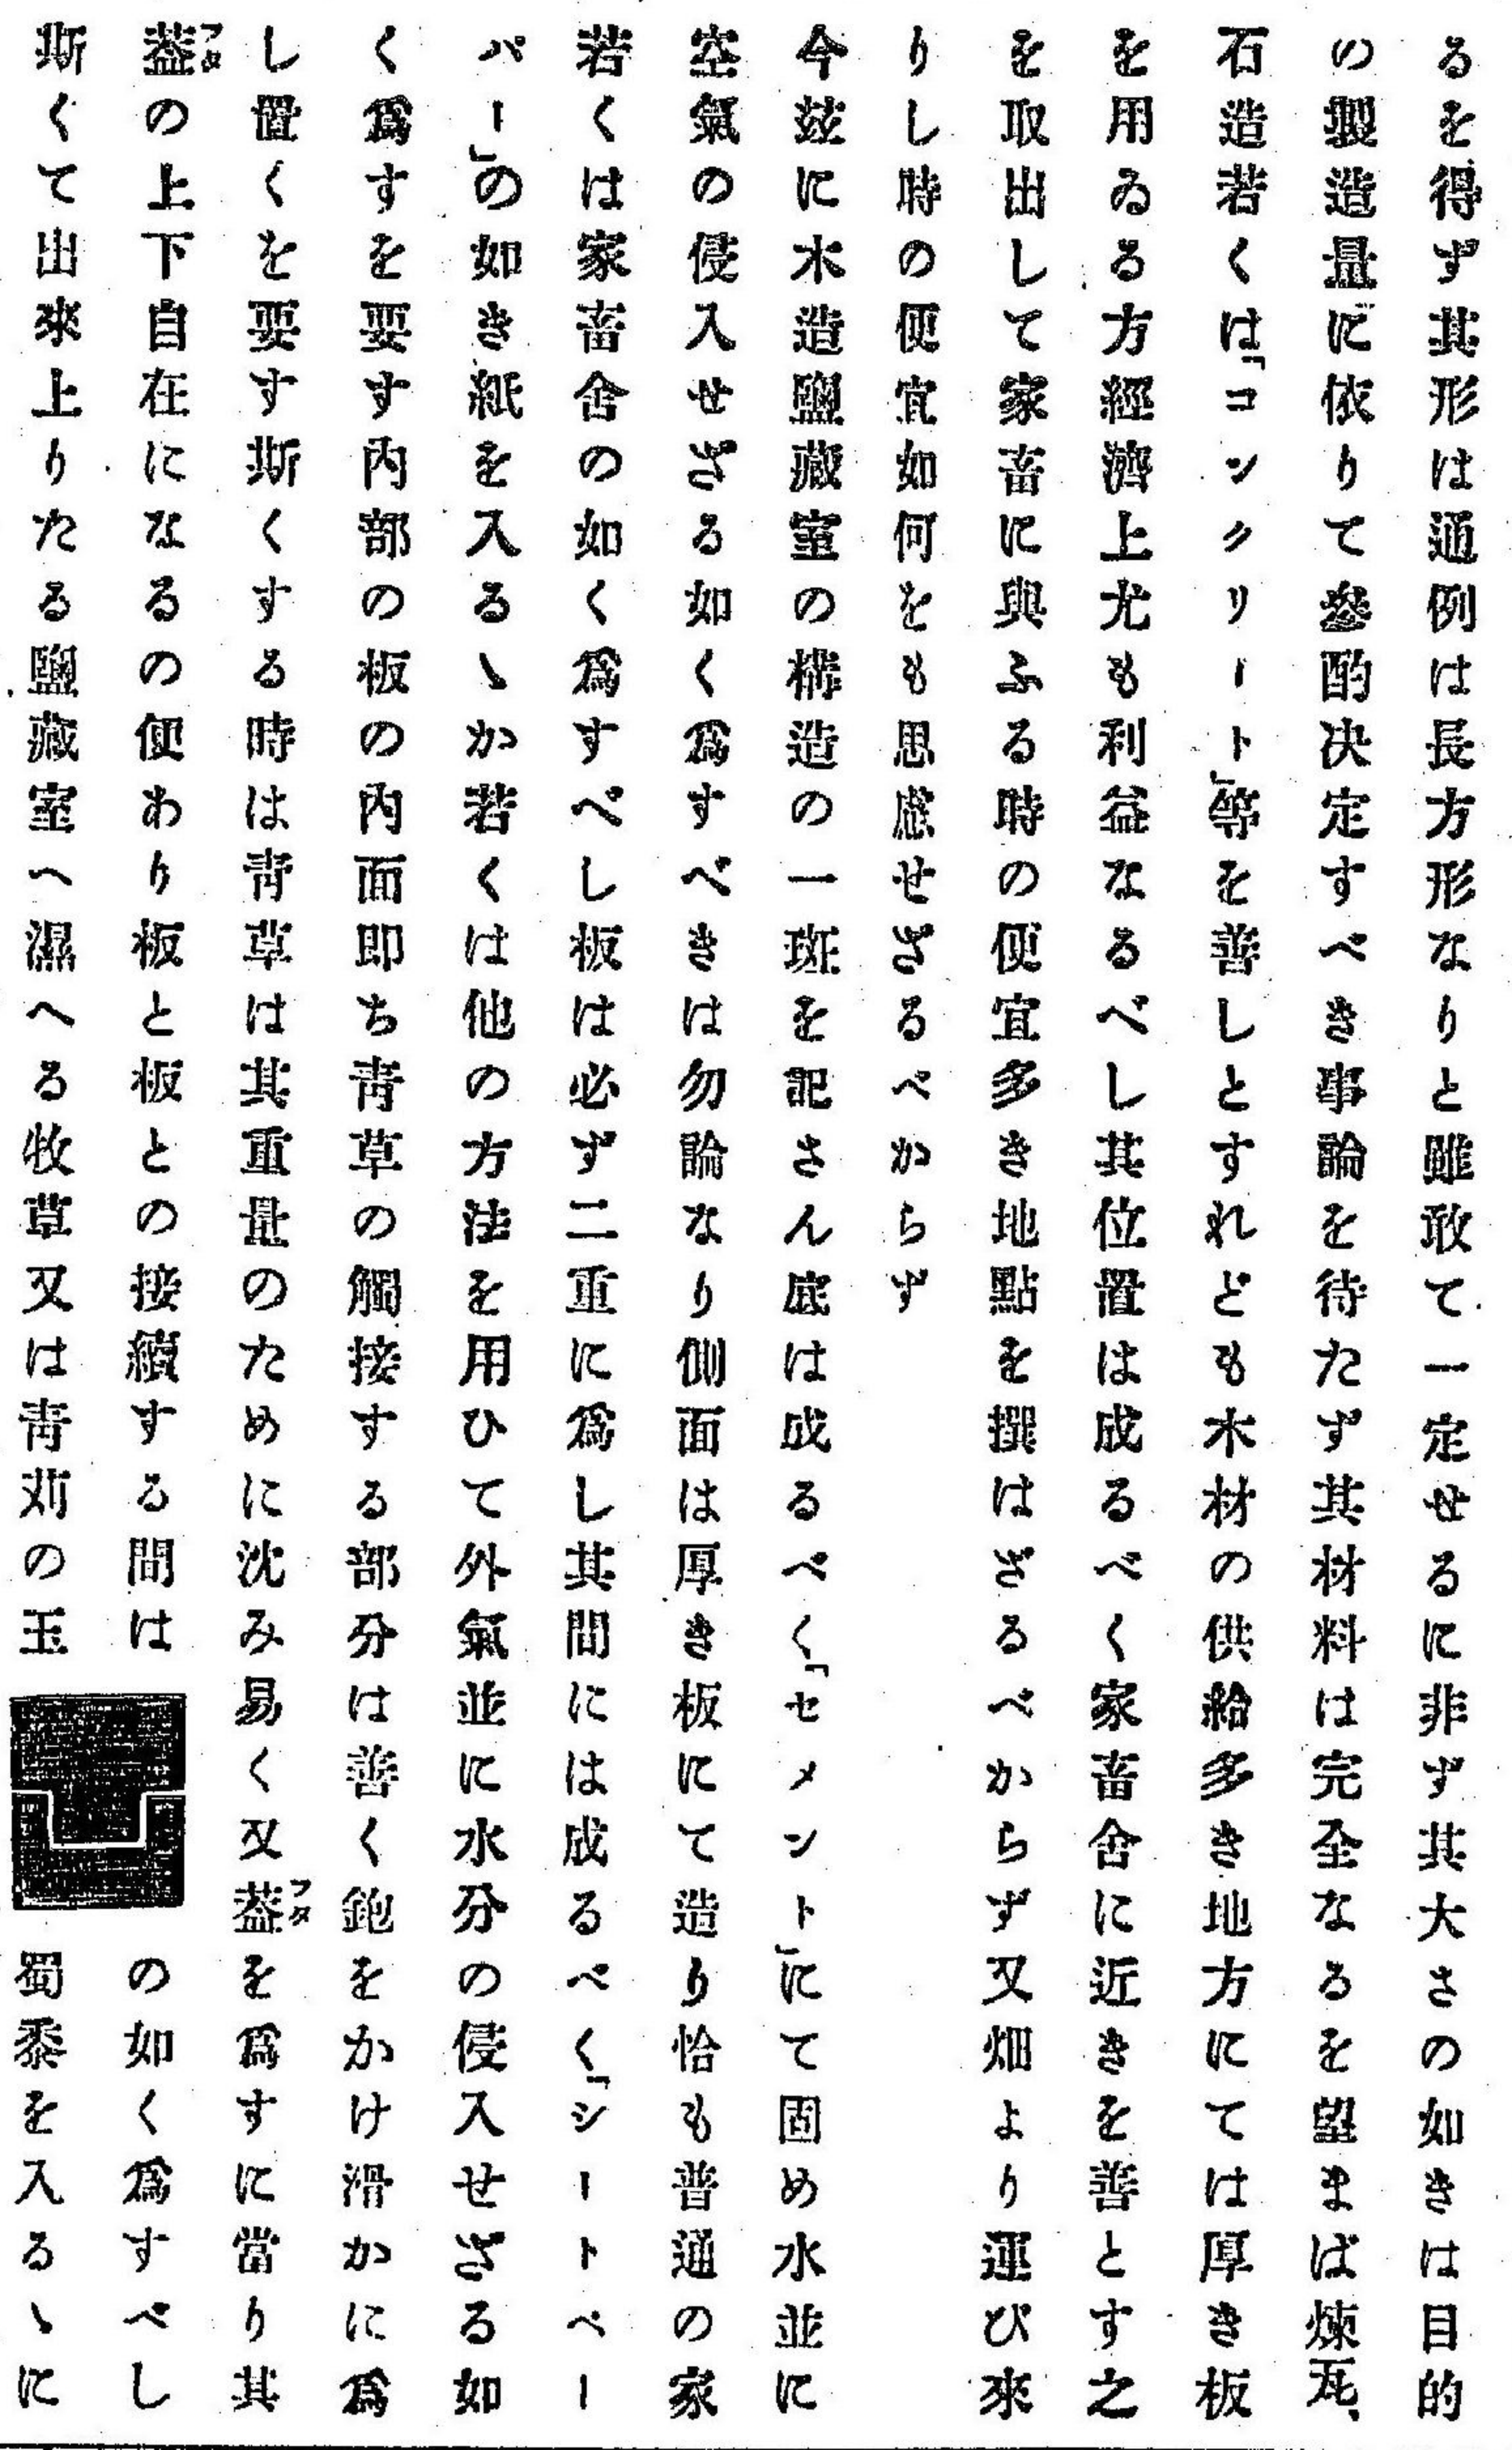 るを得ず其形は通例は長方形なりと雖敢て一定せるに非ず其大さの如きは目的
の製造量に依りて參酌决定すべき事論を待たず其材料は完全なるを望まば煉瓦、
石造若くは「コンクリート」等を善しとすれども木材の供給多き地方にては厚き板
を用ゐる方經濟上尤も利益なるべし其位置は成るべく家畜舍に近きを善とす之
を取出して家畜に與ふる時の便宜多き地點を撰はざるべからず又畑より運び來
りし時の便宜如何をも思慮せざるべからず
今玆に木造鹽藏室の構造の一斑を記さん底は成るべく「セメント」にて固め水並に
空氣の侵入せざる如く爲すべきは勿論なり側面は厚き板にて造り恰も普通の家
若くは家畜舍の如く爲すべし板は必ず二重に爲し其間には成るべく「シートペー
パー」の如き紙を入るゝか若くは他の方法を用ひて外氣並に水分の侵入せざる如
く爲すを要す內部の板の內面即ち靑草の觸接する部分は善く鉋をかけ滑かに爲
し置くを要す斯くする時は靑草は其重量のために沈み易く又葢フタを爲すに當り其
葢フタの上下自在になるの便あり板と板との接續する間はの如く爲すべし
斯くて出來上りたる鹽藏室へ濕へる牧草又は靑苅の玉蜀黍を入るゝに